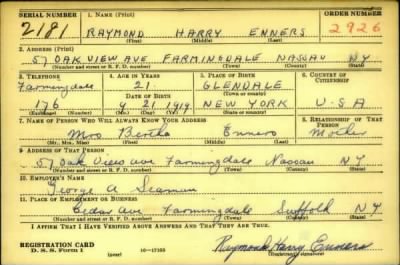 SERIAL NUMBER 1. NAME (Print) ORDER NUMBER
2181 RAYMOND HARRY ENNERS 2926
(First) (Middle) (Last)
2. ADDRESS (Print)
57 OAK VIEW AVE FARMINGDALE NASSAU NY
(Number and street or R. F. D. number) (Town) (County) (State)
3. TELEPHONE 4. AGE IN YEARS 5. PLACE OF BIRTH 6. COUNTRY OF CITIZENSHIP
Farmingdale 21 GLENDALE
DATE OF BIRTH (Town or county)
176 9 21 1919 NEW YORK U.S.A
(Mo.) (Day) (Yr.) (State or country)
7. NAME OF PERSON WHO WILL ALWAYS KNOW YOUR ADDRESS 8. RELATIONSHIP OF THAT PERSON
Mrs Bertha Enners Mother
(Mr., Mrs., Miss) (First) (Middle) (Last)
9. ADDRESS OF THAT PERSON
57 Oak View Ave Farmingdale Nassau NY
(Number and street or R. F. D. number) (Town) (County) (State)
10. EMPLOYER'S NAME
George A Seaman
11. PLACE OF EMPLOYMENT OR BUSINESS
Cedar Ave Farmingdale Suffolk NY
(Number and street or R. F. D. number) (Town) (County) (State)
I AFFIRM THAT I HAVE VERIFIED ABOVE ANSWERS AND THAT THEY ARE TRUE.
REGISTRATION CARD
D. S. S. Form 1 (over) 16—17105 Raymond Harry Enners
(Registrant's signature)